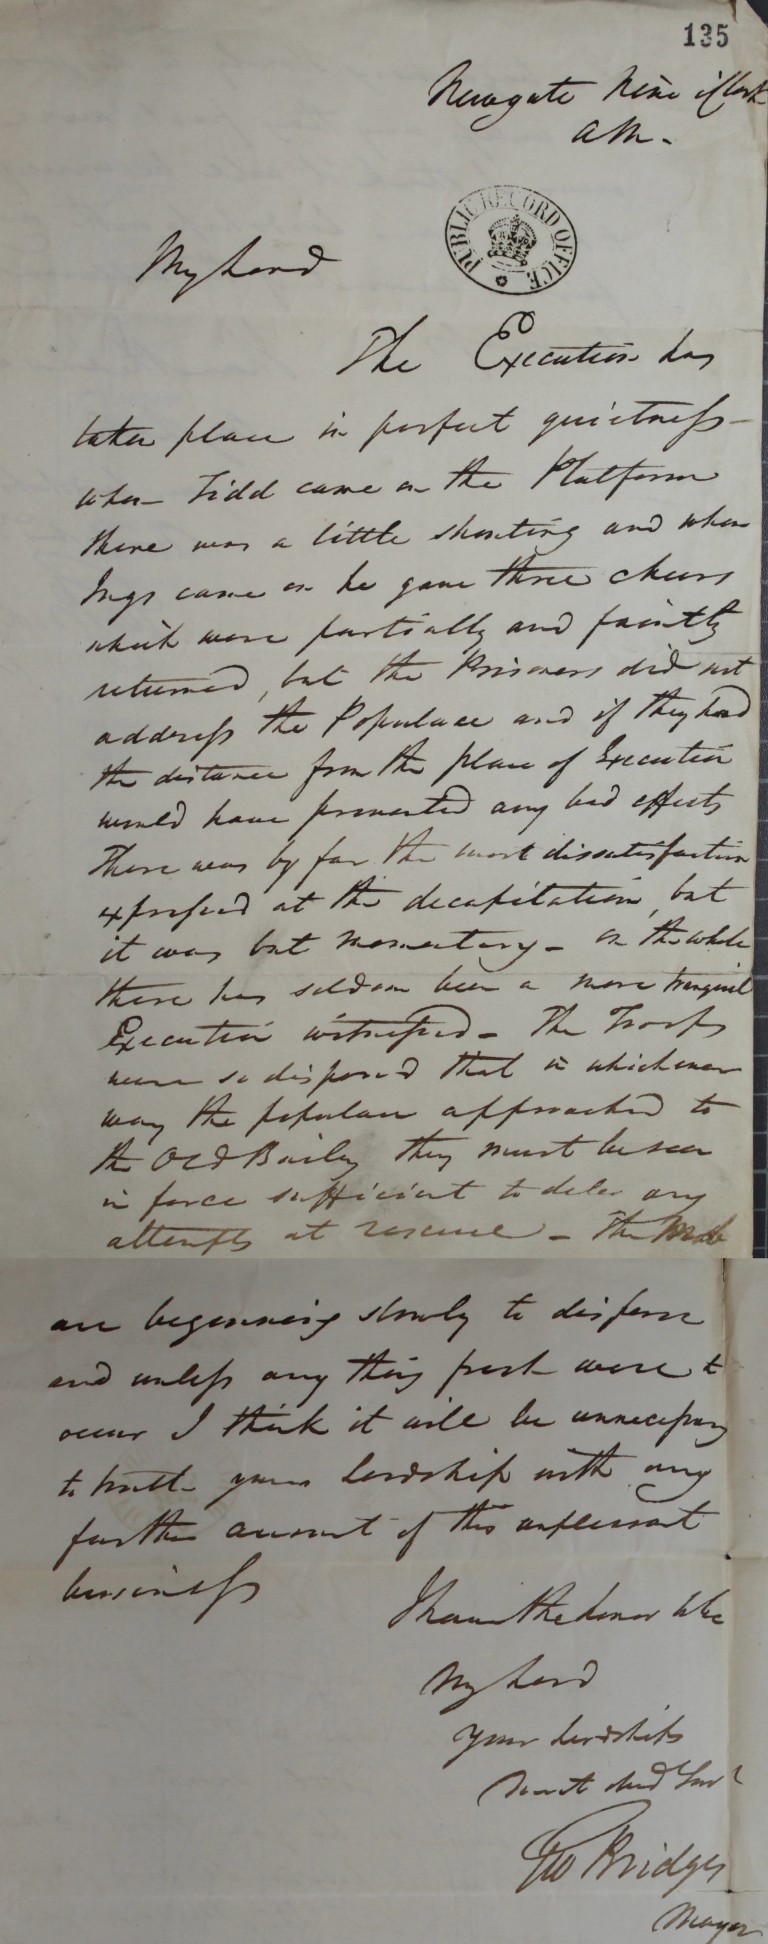 135
Newgate Nine oClock
AM.
PUBLIC RECORD OFFICE
My Lord
The Execution has
taken place in perfect quietness -
when Tidd came on the Platform
there was a little shouting and when
Ings came on he gave three cheers
which were partially and faintly
returned, but the Prisoners did not
address the Populace and if they had
the distance from the place of Execution
would have prevented any bad effects
There was by far the most dissatisfaction
expressed at the decapitation, but
it was but momentary - on the whole
there has seldom been a more tranquil
Execution witnessed - The Troops
were so disposed that in whichever
way the populace approached to
the Old Bailey they must be seen
in force sufficient to deter any
attempts at rescue - The Mob
are beginning slowly to disperse
and unless any thing fresh were to
occur I think it will be unnecessary
to trouble your Lordship with any
further account of this unpleasant
business
I have the honor to be
My Lord
Your Lordships
Most obed Servt
Geo Bridges
Mayor